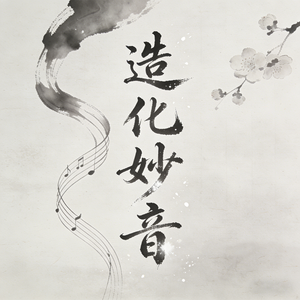 造化妙音